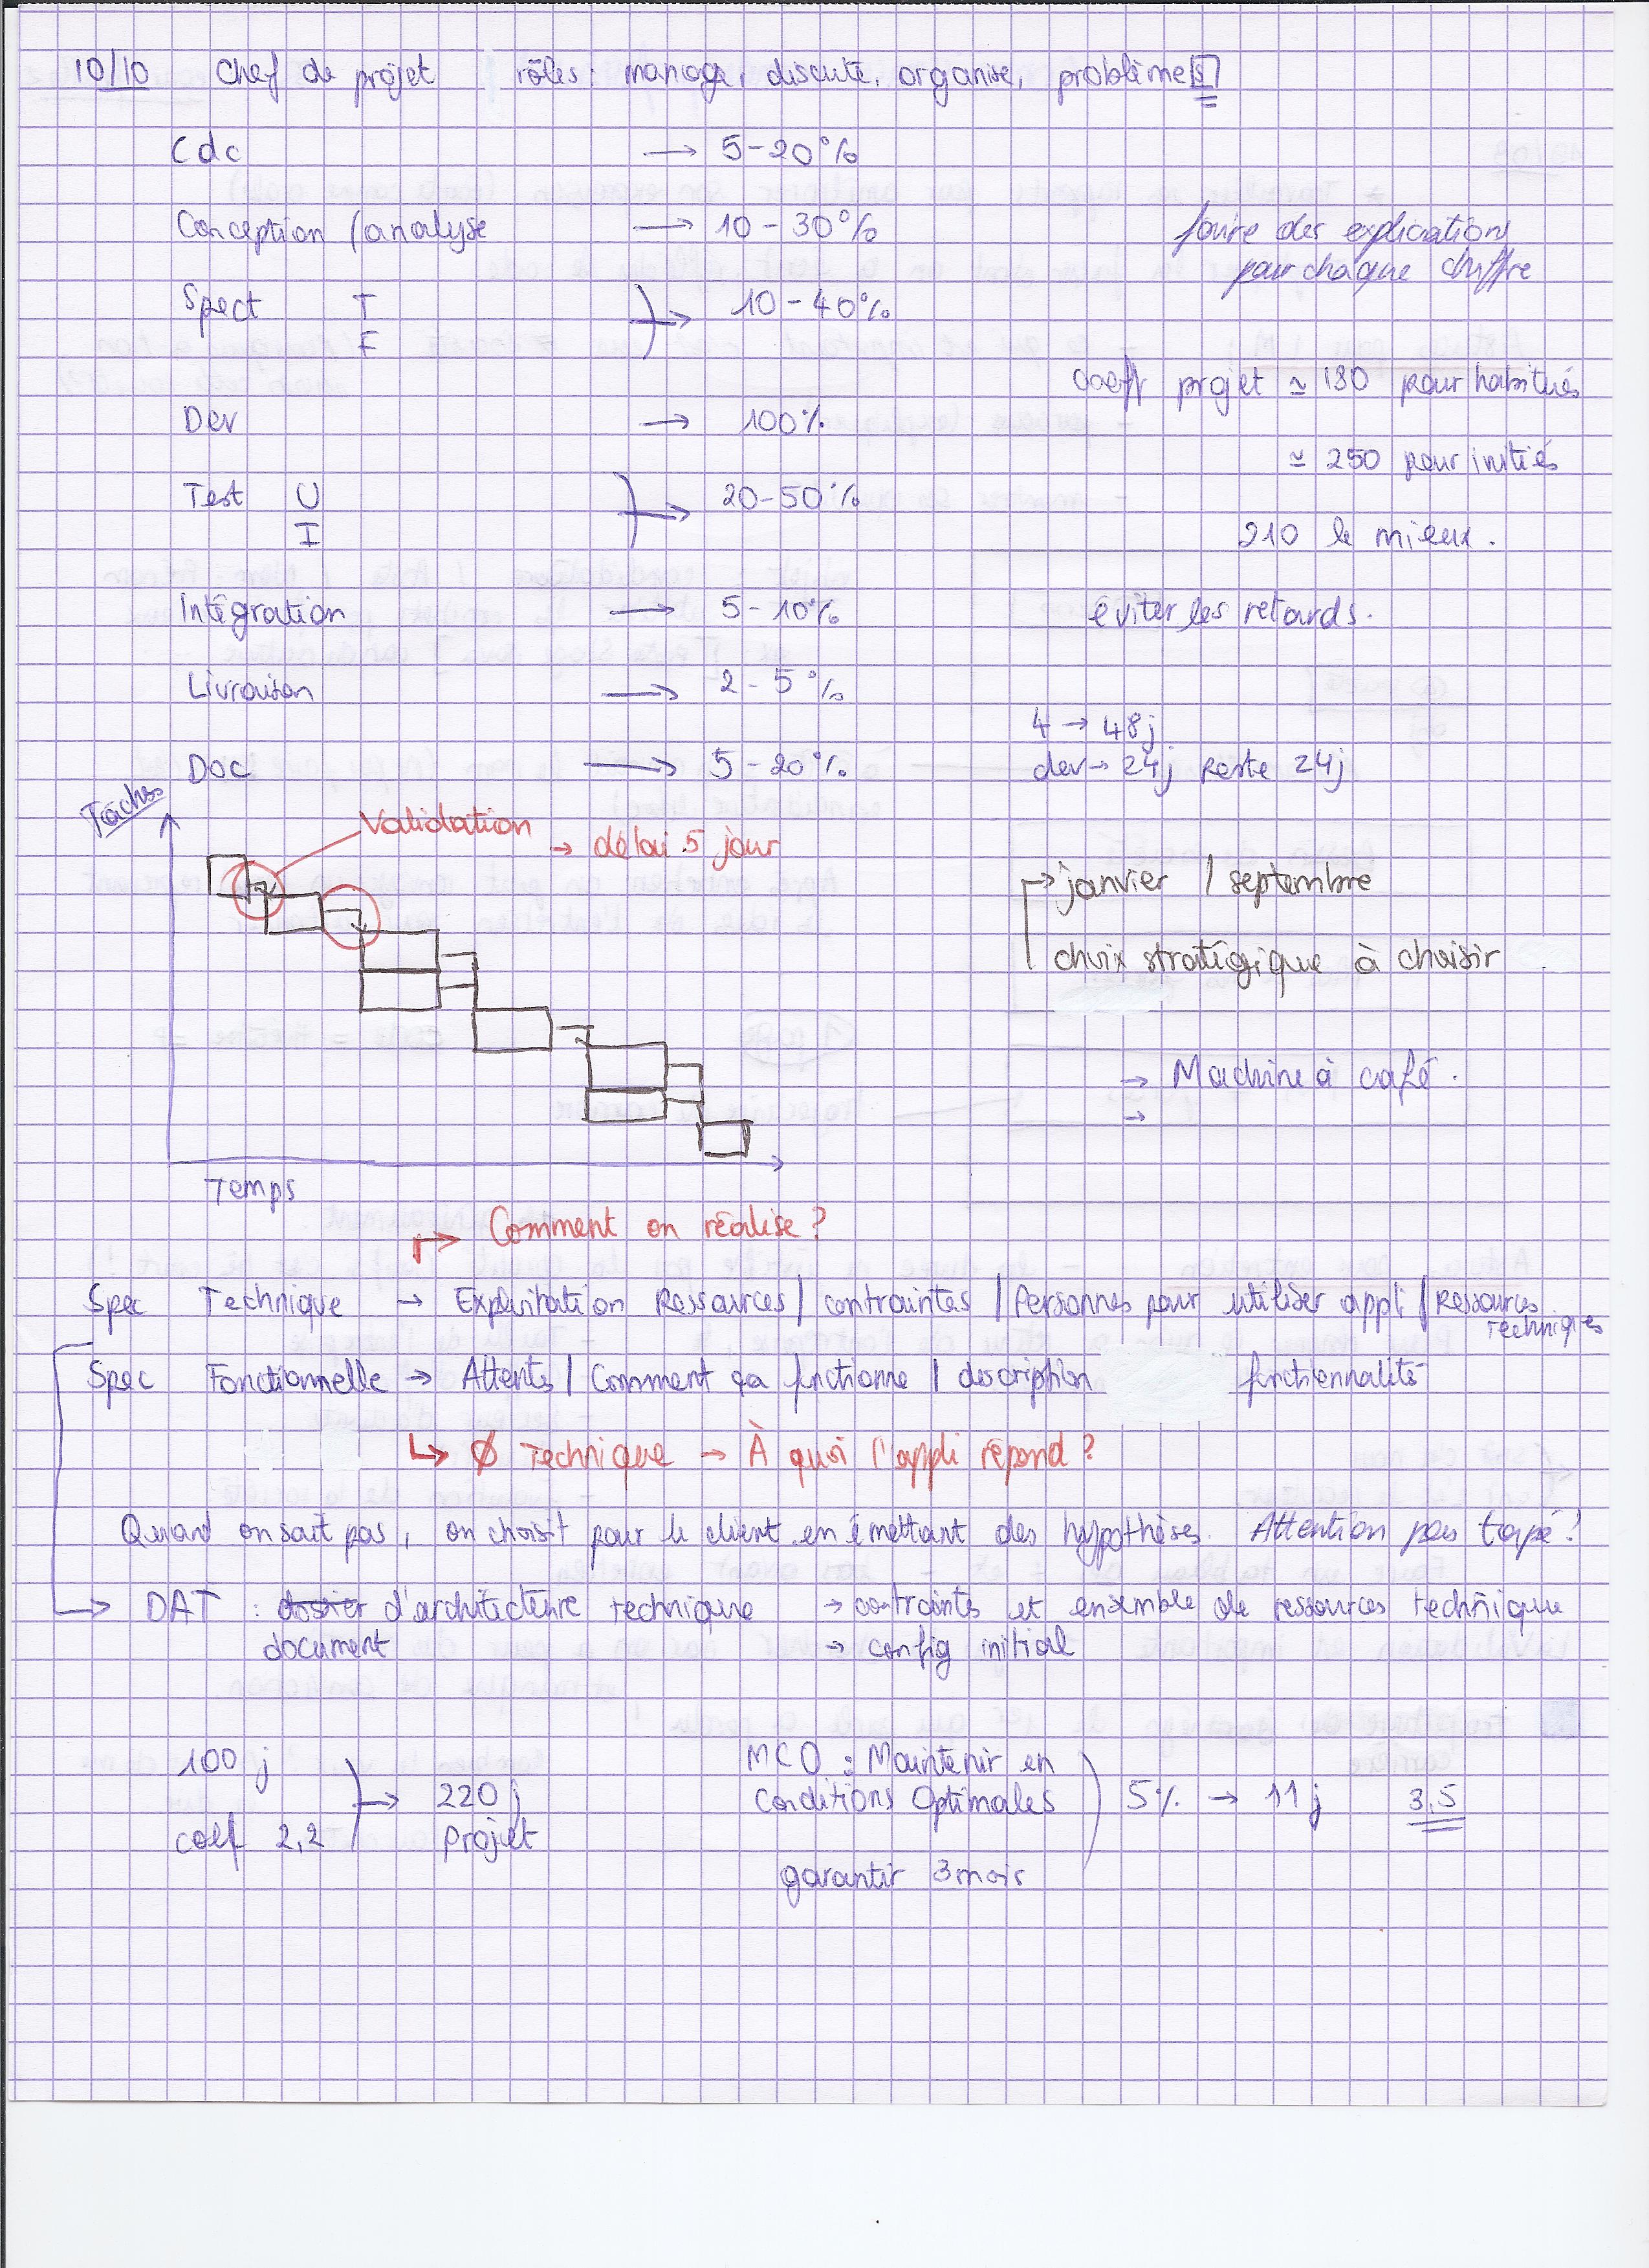 10/10 Chef de projet rôles : manage, discute, organise, problèmes
Cdc → 5-20%
Conception /analyse → 10-30%
faire des explications
pour chaque chiffre
Spect T → 10-40%
F
coeff projet ≃ 180 pour habitués
Dev → 100%
≃ 250 pour initiés
Test U → 20-50%
I
210 le mieux.
Intégration → 5-10%
éviter les retards.
Livraison → 2-5%
4 → 48j
Doc → 5-20%
dev → 24j reste 24j
Tâches
Validation
→ délai 5 jour
→ janvier / septembre
choix stratégique à choisir
→ Machine à café.
→
Temps
→ Comment on réalise ?
Spec Technique → Exploitation Ressources / contraintes / Personnes pour utiliser appli / Ressources
techniques
Spec Fonctionnelle → Attentes / Comment ça fonctionne / description fonctionnalité
↳ Ø technique → À quoi l'appli répond ?
Quand on sait pas, on choisit pour le client en émettant des hypothèses. Attention pas tapé !
→ DAT : dossier d'architecture technique → contraintes et ensemble de ressources technique
document → config initial
100 j
coef 2,2 → 220 j
projet
MCO : Maintenir en
conditions Optimales 5% → 11 j 3,5
garantir 3 mois